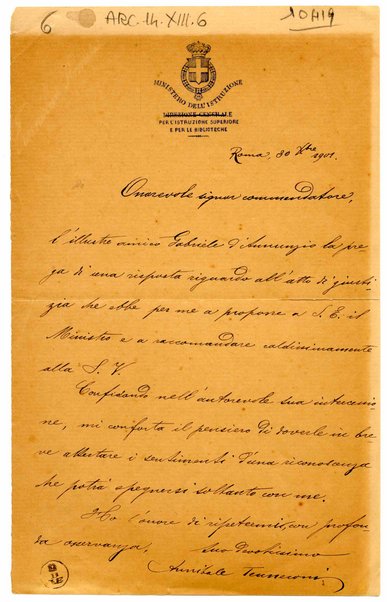 6 ARC. 14. XIII. 6 10419
MINISTERO DELL'ISTRUZIONE
DIREZIONE GENERALE
PER L'ISTRUZIONE SUPERIORE
E PER LE BIBLIOTECHE
Roma, 30 Xbre 1901.
Onorevole signor commendatore,
l'illustre amico Gabriele d'Annunzio la pre
ga di una risposta riguardo all'atto di giusti
zia che ebbe per me a proporre a S. E. il
Ministro e a raccomandare caldissimamente
alla S. V.
Confidando nell'autorevole sua intercessio
ne, mi conforta il pensiero di doverle in bre
ve attestare i sentimenti d'una riconoscenza
che potrà spegnersi soltanto con me.
Ho l'onore di ripetermi, con profon
da osservanza, suo devotissimo
Annibale Tenneroni